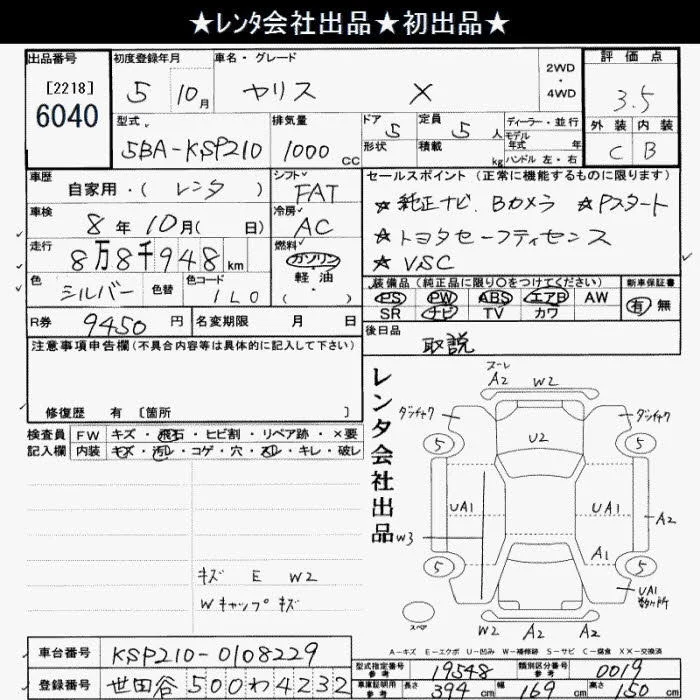 ★レンタ会社出品★初出品★
出品番号
[2218]
6040
初度登録年月
5 10月
車名・グレード
ヤリス X
2WD
・
4WD
評価点
3.5
外装 内装
C B
型式
5BA-KSP210
排気量
1000 cc
ドア 5
形状
定員 5 人
積載 kg
ディーラー・並行
モデル
年式 年
ハンドル 左・右
車歴
自家用・( レンタ )
シフト
FAT
車検
8年10月( 日)
冷房
AC
走行
8万8千948km
燃料
ガソリン
・
軽・油
( )
色
シルバー
色替
色コード
1L0
セールスポイント (正常に機能するものに限ります)
★純正ナビ、Bカメラ ★Pスタート
★トヨタセーフティセンス
★VSC
装備品 (純正品に限り○をつけてください)
PS PW ABS エアB AW
SR ナビ TV カワ
新車保証書
有・無
R券 9450円
名変期限 月 日
後日品
取説
注意事項申告欄(不具合内容等は具体的に記入して下さい)
修復歴 有〔箇所 〕
検査員
記入欄
FW キズ・飛石・ヒビ割・リペア跡・×要
内装 キズ・汚れ・コゲ・穴・スレ・キレ・破レ
キズ E W2
Wキャップキズ
レンタ会社出品
ヌーレ
A2 W2
ダンチャク
ダンチャク
5
5
U2
UA1
UA1
W3
A2
A1
5
5
UA1
数ヶ所
スペア
W2 A2 A2
A-キズ E-エクボ U-凹み W-補修跡 S-サビ C-腐食 XX-交換済
車台番号 KSP210-0108229
登録番号 世田谷500わ4232
型式指定番号
参考
19548
類別区分番号
参考
0019
車庫証明用
参考
長さ 394 cm 幅 169 cm 高さ 150 cm